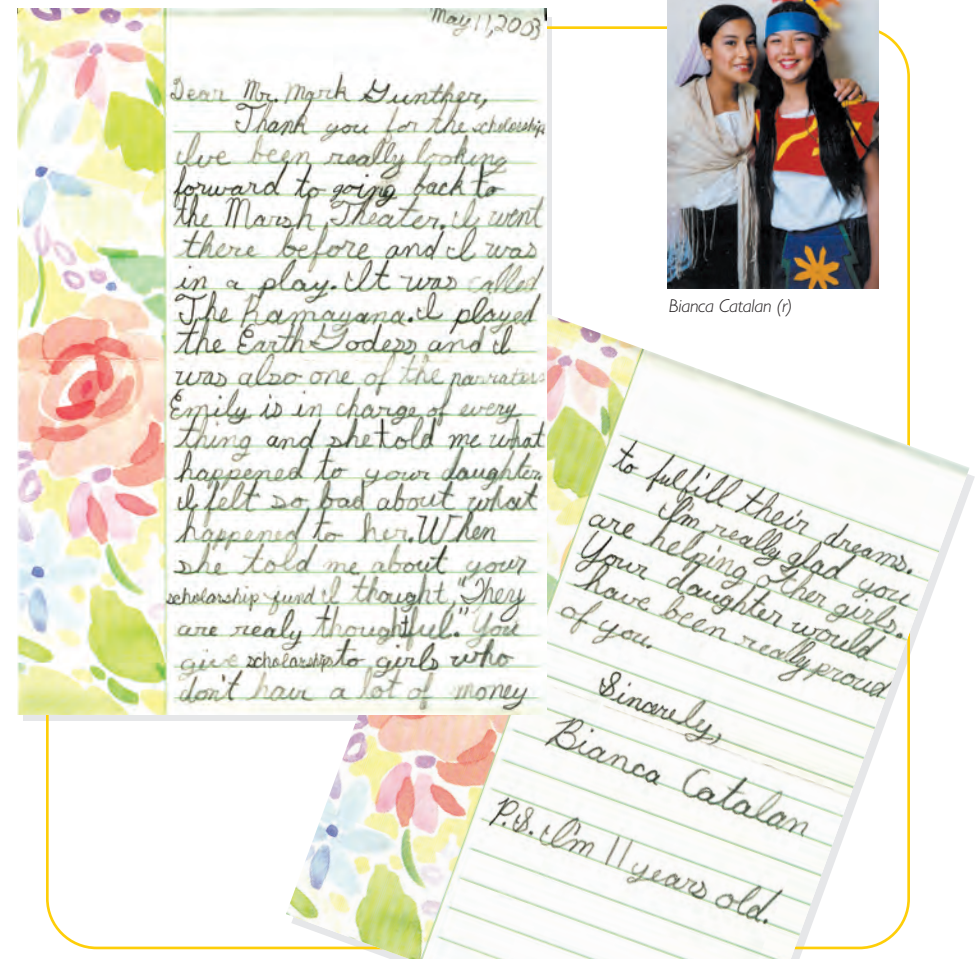 May 11, 2003
Dear Mr. Mark Gunther,
Thank you for the scholership
I've been really looking
forward to going back to
the Marsh Theater. I went
there before and I was
in a play. It was called
The Ramayana. I played
the Earth Godess and I
was also one of the narraters
Emily is in charge of every
thing and she told me what
happened to your daughter.
I felt so bad about what
happened to her. When
she told me about your
scholarship fund I thought, "They
are realy thoughtful." You
give scholarship to girls who
don't have a lot of money
Bianca Catalan (r)
to fulfill their dreams.
I'm really glad you
are helping other girls.
Your daughter would
have been really proud
of you.
Sincerely,
Bianca Catalan
P.S. I'm 11 years old.